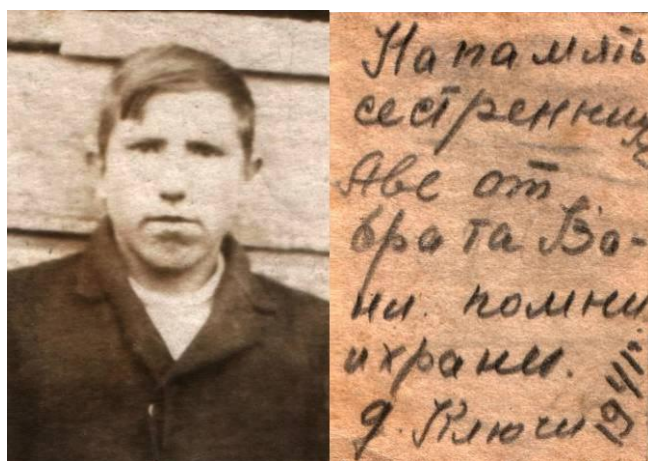 На память
сестреннице
Аве от
брата Ва-
ни. помни
и храни.
д. Ключи
1941г.